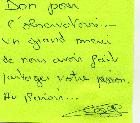 Bon pour
l'observatoire...
un grand merci
de nous avoir fait
partager votre passion.
Au plaisir...